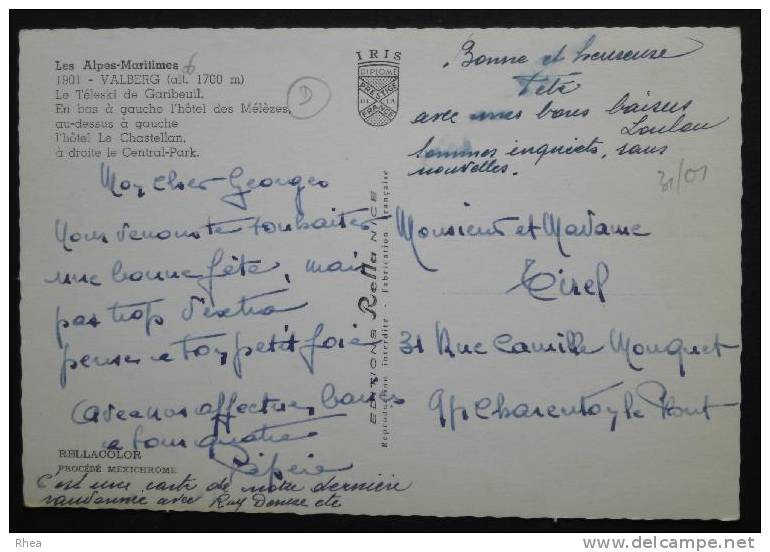 Les Alpes-Maritimes 06
1901 - VALBERG (alt. 1700 m)
Le Téleski de Garibeuil.
En bas à gauche l'hôtel des Mélèzes,
au-dessus à gauche
l'hôtel Le Chastellan,
à droite le Central-Park.
D
IRIS
DIPLOME
PRESTIGE
DE LA
FRANCE
Bonne et heureuse
fête
avec mes bons baisers
Loulou
Sommes inquiets, sans
nouvelles.
31/01
Mon cher Georges
Nous venons te souhaiter
une bonne fête, mais
pas trop d'extra
pense a ton petit foie
avec nos affectueux baisers
a tous quatre
C'est une carte de notre dernière
randonnée avec Ray Denise etc
RELLACOLOR
PROCÉDÉ MEXICHROME
EDITIONS Rella NICE
Reproduction interdite - Fabrication française
Monsieur et Madame
Tirel
31 Rue Camille Mouquet
94 Charenton le Pont
Rhea
delcampe.net